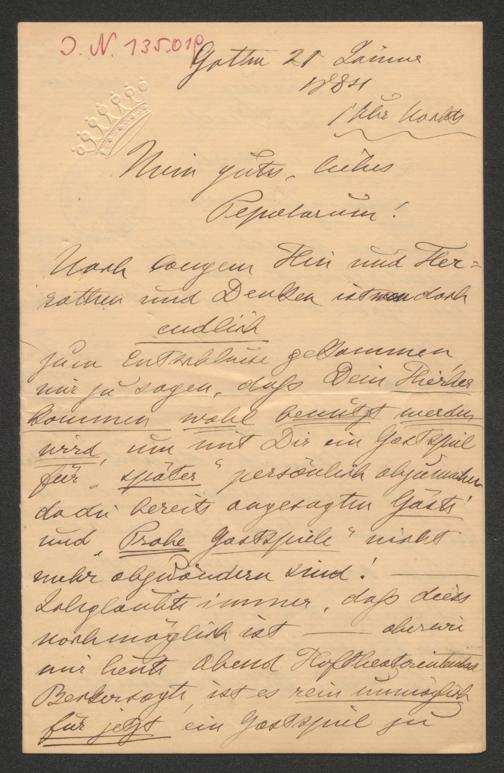 J. N. 135.019
Gotha 21 Jänner
1884
1 Uhr Nachts
Mein gutes, liebes
Pepolarum!
Nach langem Hin und Her=
rathen und Denken ist man doch
endlich
zum Entschlusse gekommen
mir zu sagen, daß Dein Hierher
kommen wohl benützt werden
wird, um mit Dir ein Gastspiel
für „später“ persönlich abzumachen
da die bereits angesagten Gäste
und „Probe Gastspiele“ nicht
mehr abzuändern sind! —
Ich glaubte immer, daß dies
noch möglich ist — aber wie
mir heute Abend Hoftheaterintendant
sagte, ist es rein unmöglich
für jetzt ein Gastspiel zu